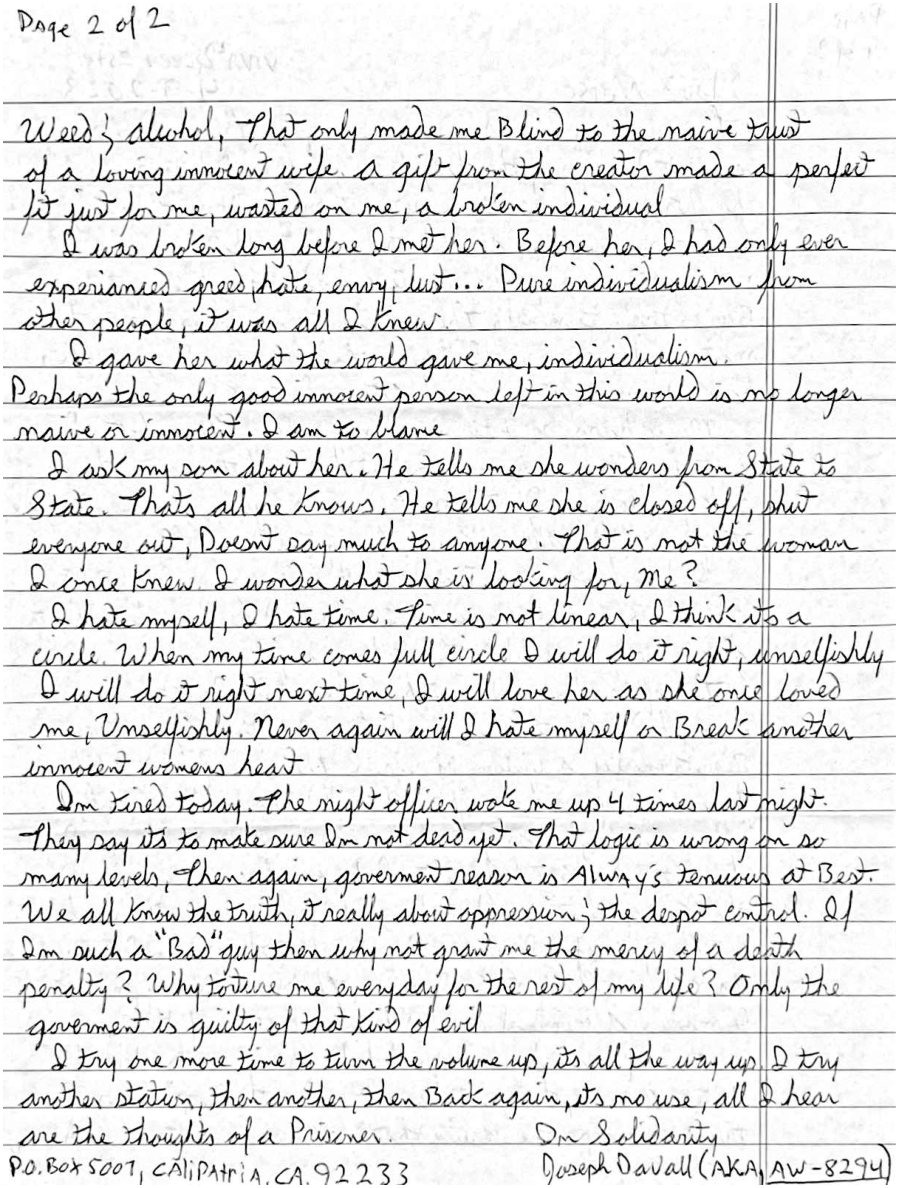 Page 2 of 2
Weed & alcohol, That only made me Blind to the naive trust
of a loving innocent wife. A gift from the creator made a perfect
fit just for me, wasted on me, a broken individual
I was broken long before I met her. Before her, I had only ever
experianced greed, hate, envy, lust... Pure individualism from
other people, it was all I knew.
I gave her what the world gave me, individualism.
Perhaps the only good innocent person left in this world is no longer
naive or innocent. I am to blame
I ask my son about her. He tells me she wonders from State to
State. Thats all he knows. He tells me she is closed off, shut
everyone out, Doesnt say much to anyone. That is not the woman
I once knew. I wonder what she is looking for, Me?
I hate myself, I hate time. Time is not linear, I think its a
circle. When my time comes full circle I will do it right, unselfishly
I will do it right next time, I will love her as she once loved
me, Unselfishly. Never again will I hate myself or Break another
innocent womens heart
Im tired today. The night officer woke me up 4 times last night.
They say its to make sure Im not dead yet. That logic is wrong on so
many levels, Then again, goverment reason is Always tenuous at Best.
We all know the truth, it really about oppression & the despot control. If
Im such a "Bad" guy then why not grant me the mercy of a death
penalty? Why torture me everyday for the rest of my life? Only the
goverment is guilty of that kind of evil
I try one more time to turn the volume up, its all the way up. I try
another station, then another, then Back again, its no use, all I hear
are the thoughts of a Prisoner. In Solidarity
P.O. Box 5007, CAliPAtriA, CA. 92233 Joseph Davall (AKA AW-8294)